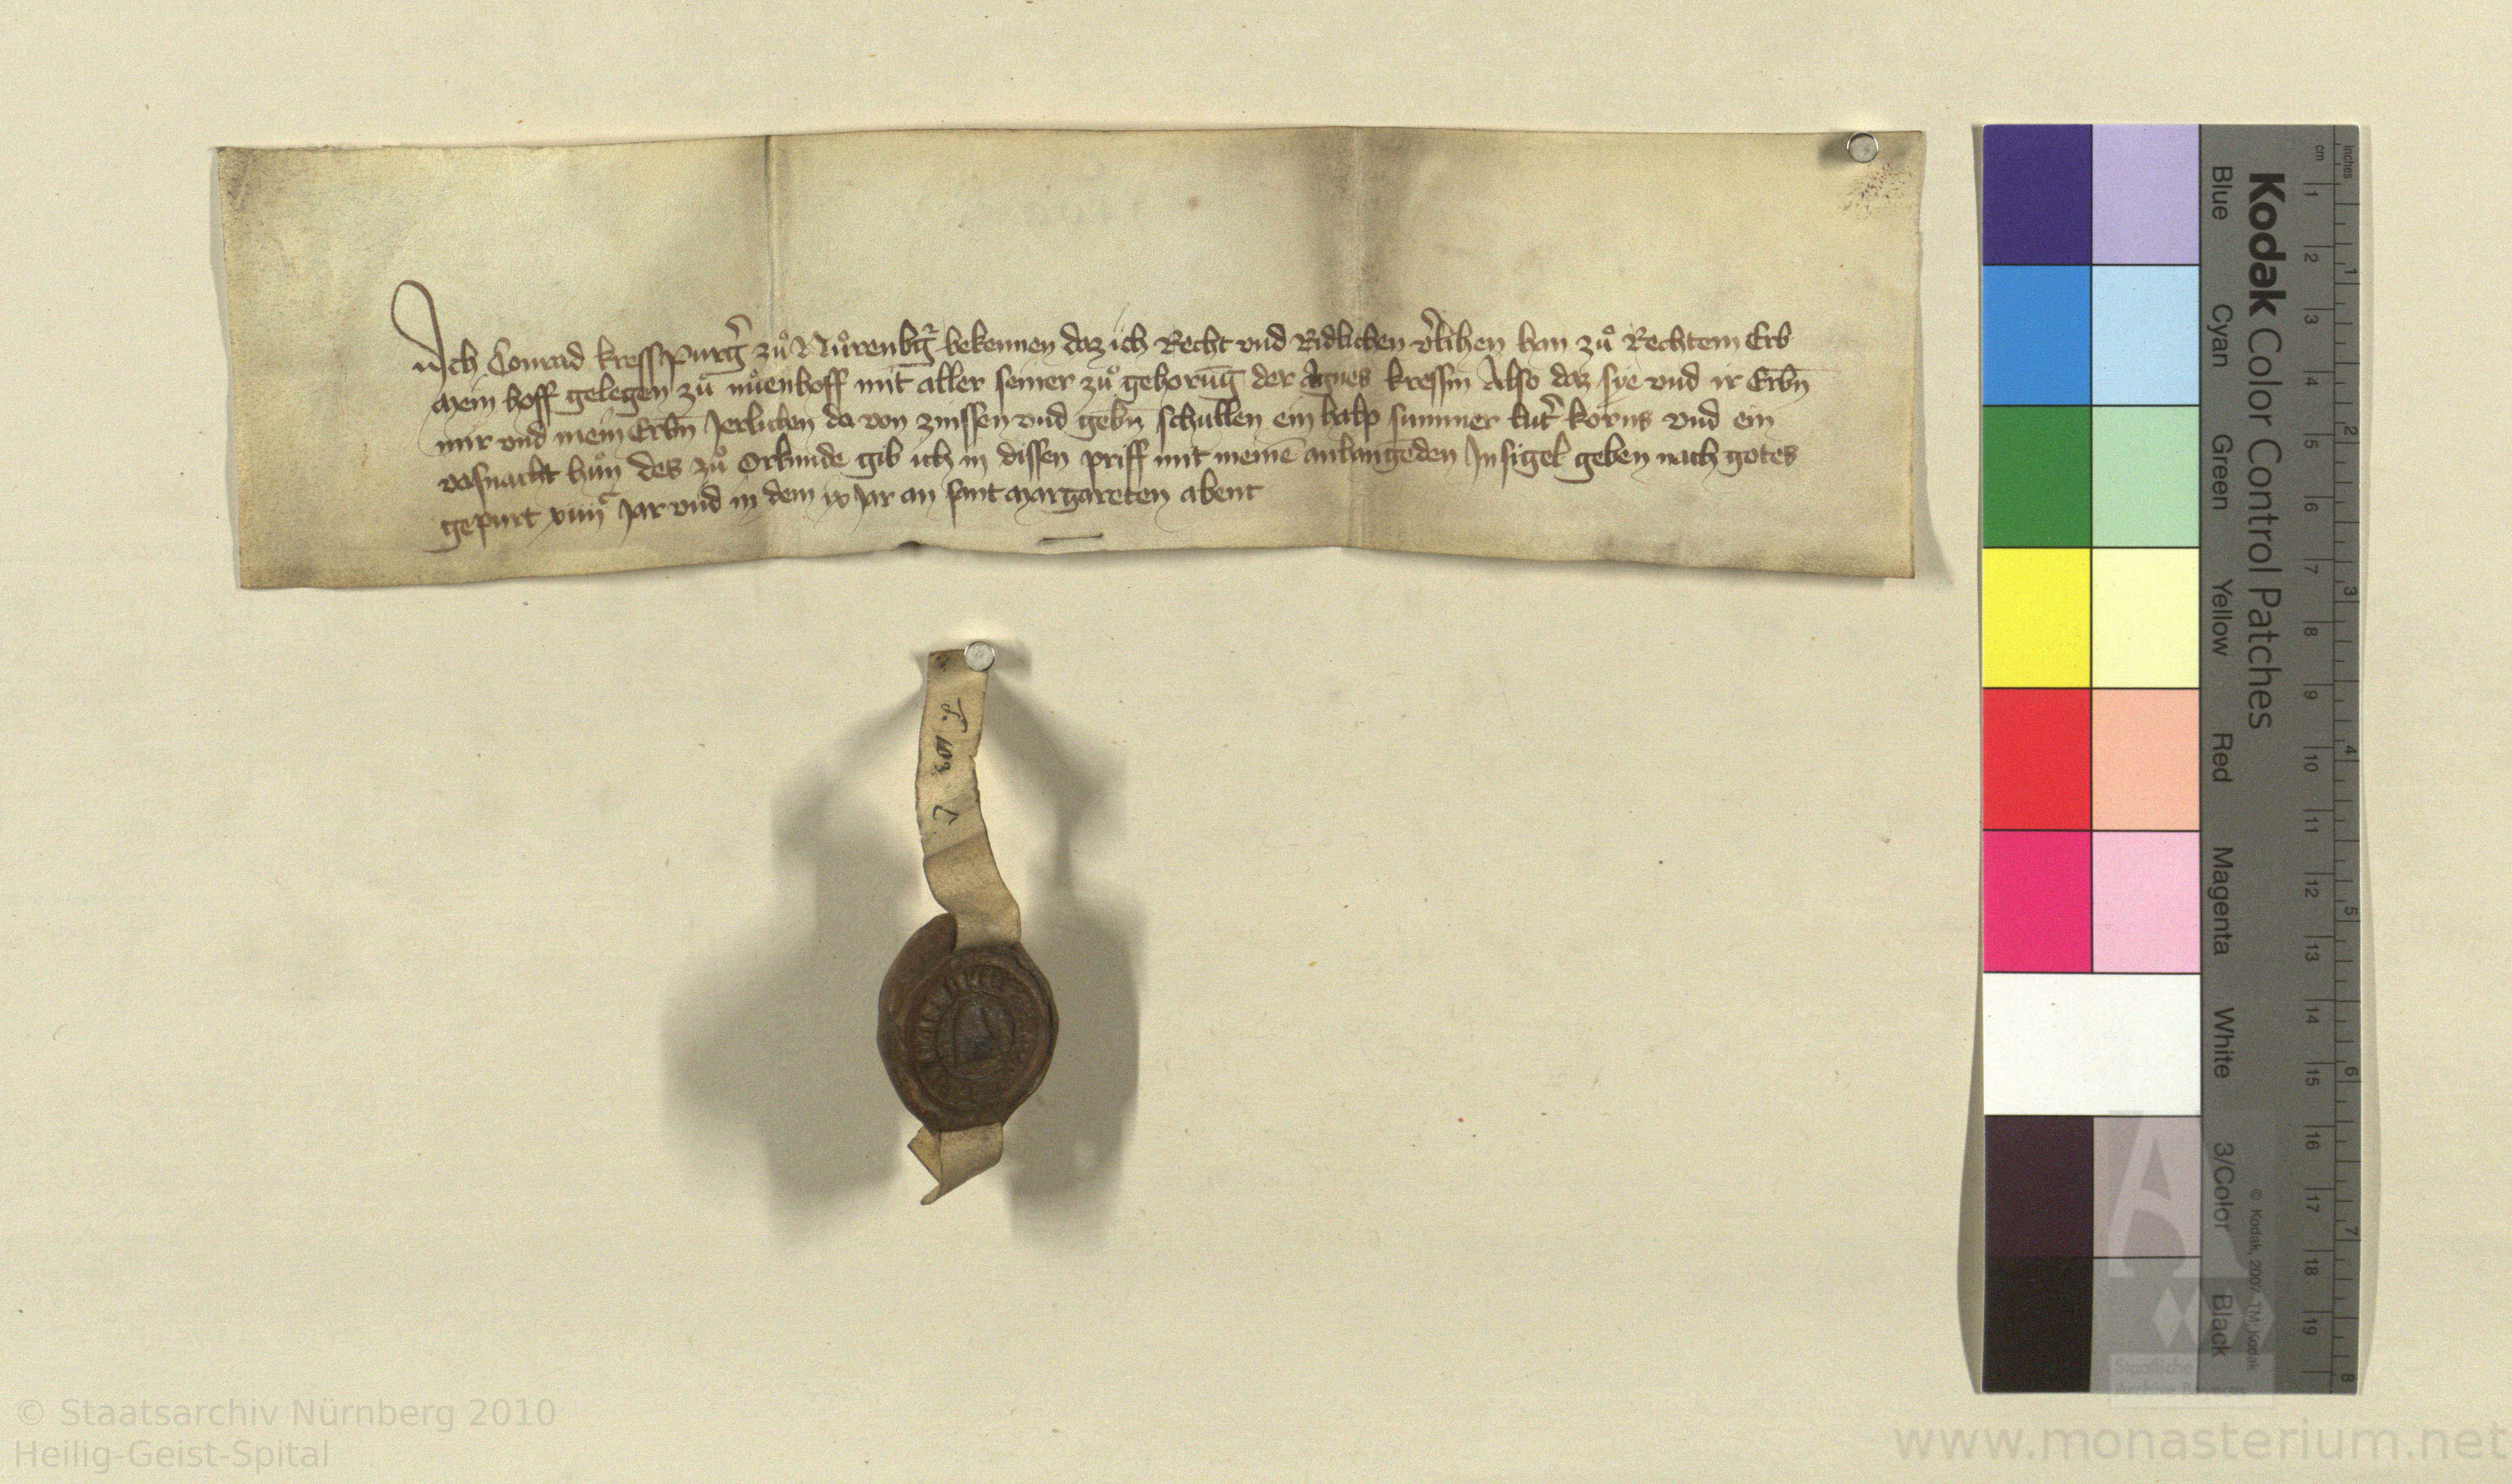 Ich Conrad kress Purḡ zů Nůrenbḡ bekennen daz ich Recht vnd Ridlichen v̓lihen han zů Rechtem Erb
mein hoff gelegen zů nůenhoff mit aller seiner zů gehorūg der Agnes kressin Also daz sye vnd ir Erbn̄
mir vnd mein Erbn̄ Jerlichen da von zinssen vnd gebn̄ schullen ein halp summer lut̓ korns vnd ein
vasnacht hůn des zů Orkunde gib ich in dissen priff mit meinē anhangēden Insigel geben nach gotes
gepurt xiiiiᶜ Jar vnd in dem ix Jar an sant Margareten abent
Kodak Color Control Patches
Blue Cyan Green Yellow Red Magenta White 3/Color Black
© Kodak, 2007 TM: Kodak
cm 1 2 3 4 5 6 7 8 9 10 11 12 13 14 15 16 17 18 19
inches 1 2 3 4 5 6 7 8
© Staatsarchiv Nürnberg 2010
Heilig-Geist-Spital
www.monasterium.net